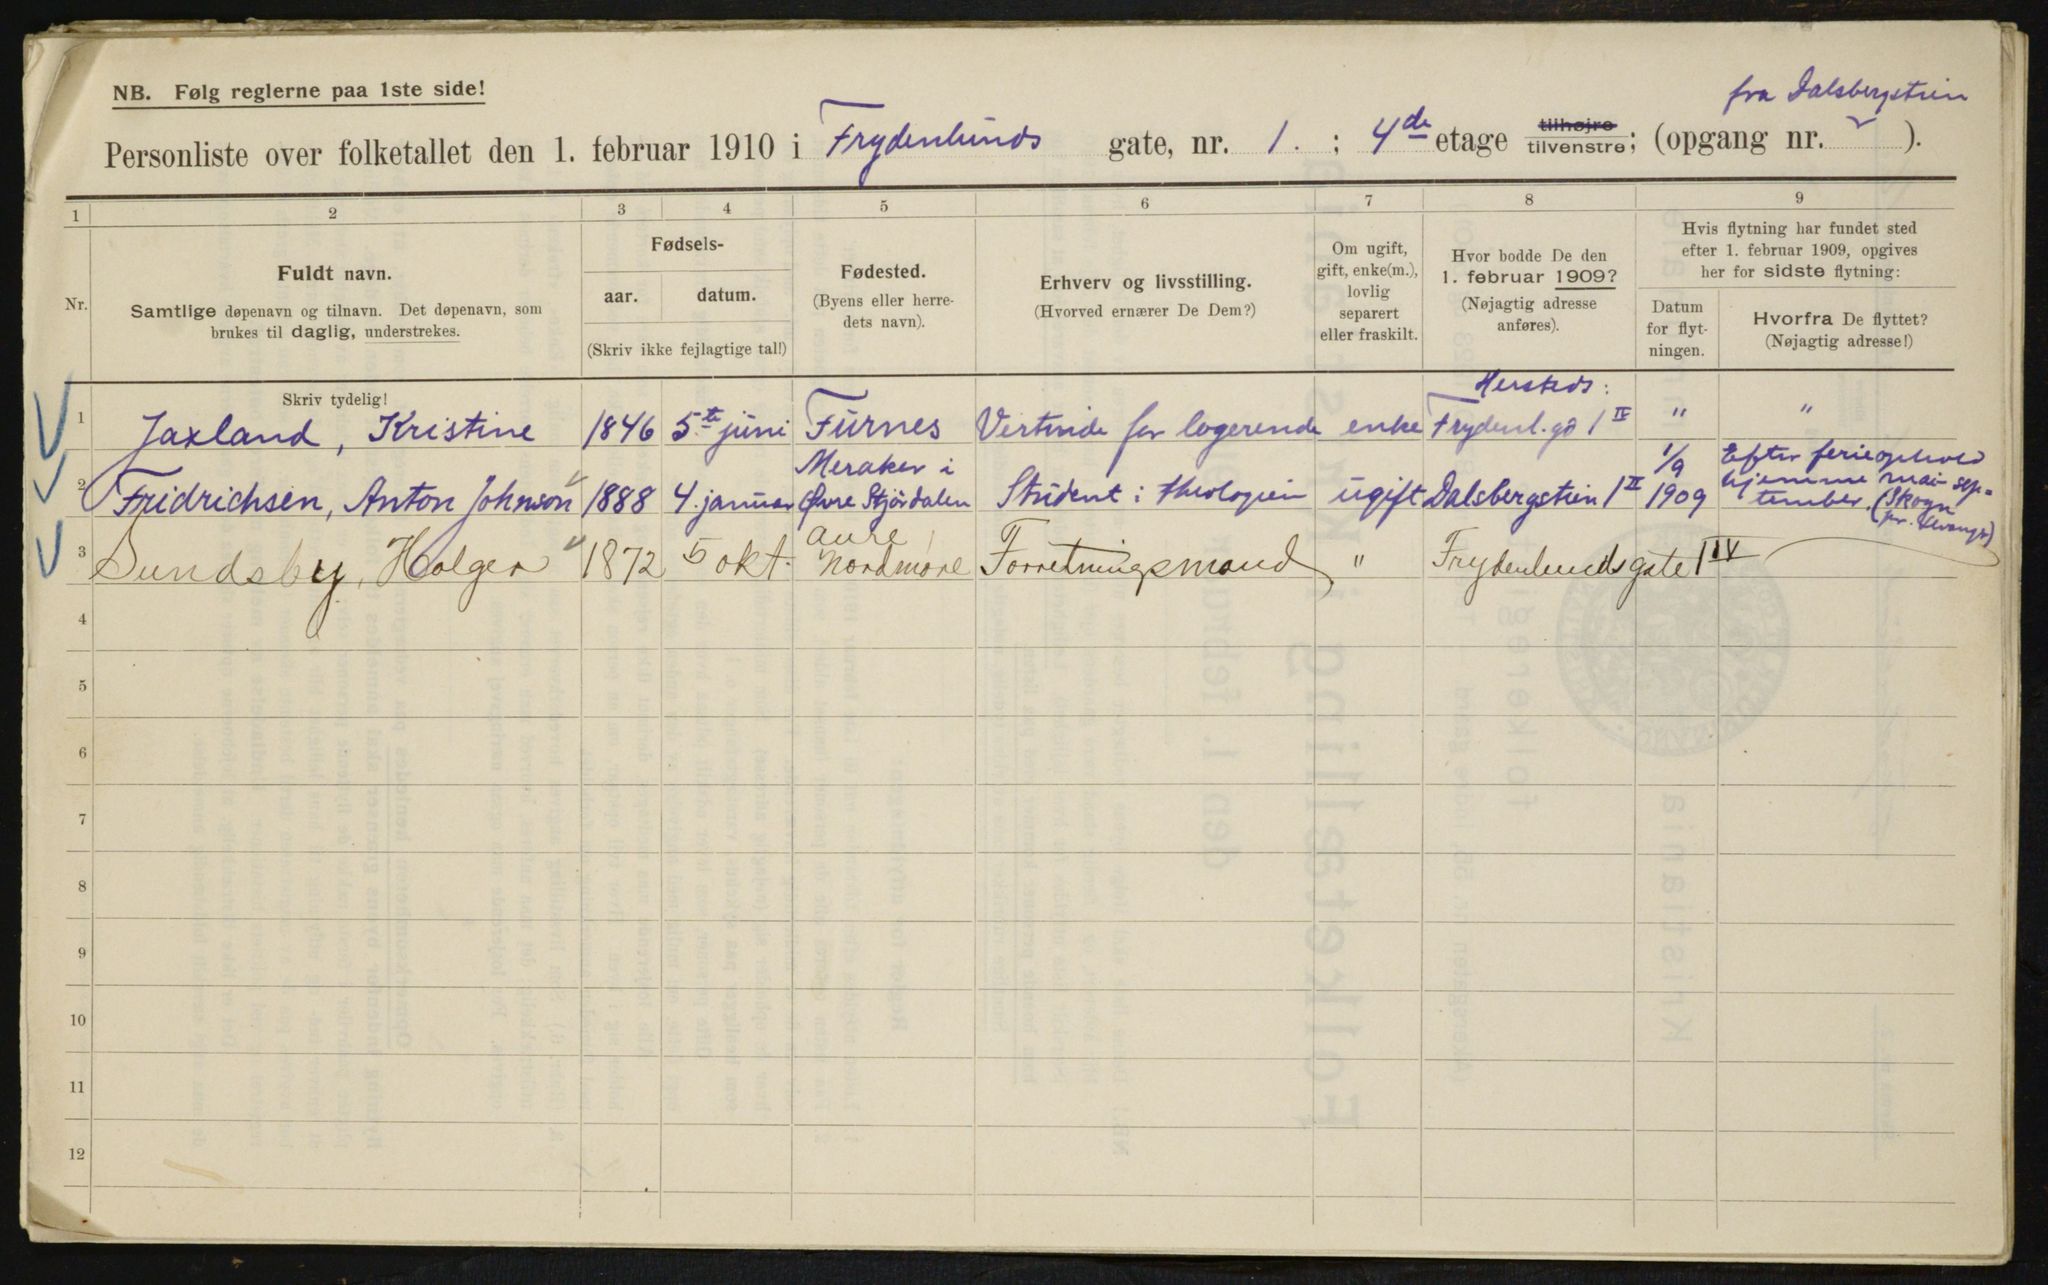 NB. Følg reglerne paa 1ste side!
fra Dalsbergstien
Personliste over folketallet den 1. februar 1910 i Frydenlunds gate, nr. 1. ; 4de etage tilhøjre tilvenstre; (opgang nr. ).
1 2 3 4 5 6 7 8 9
Nr.
Fuldt navn.
Samtlige døpenavn og tilnavn. Det døpenavn, som
brukes til daglig, understrekes.
Fødsels-
aar. datum.
(Skriv ikke fejlagtige tal!)
Fødested.
(Byens eller herre-
dets navn).
Erhverv og livsstilling.
(Hvorved ernærer De Dem?)
Om ugift,
gift, enke(m.),
lovlig
separert
eller fraskilt.
Hvor bodde De den
1. februar 1909?
(Nøjagtig adresse
anføres).
Hvis flytning har fundet sted
efter 1. februar 1909, opgives
her for sidste flytning:
Datum
for flyt-
ningen.
Hvorfra De flyttet?
(Nøjagtig adresse!)
Skriv tydelig!
Hersteds:
1 Jaxland, Kristine 1846 5te juni Furnes Vertinde for logerende enke Frydenl.g. 1 IV " "
Meraker i 1/9 Efter ferieophold
2 Fridrichsen, Anton Johnson 1888 4. januar Øvre Stjørdalen Student i theologien ugift Dalsbergstien 1 II 1909 hjemme mai-sep-
tember. (Skogn
pr. Levanger)
Aure,
3 Sundsby, Holger 1872 5 okt. Nordmøre Forretningsmand " Frydenlundsgate 1 IV
4
5
6
7
8
9
10
11
12